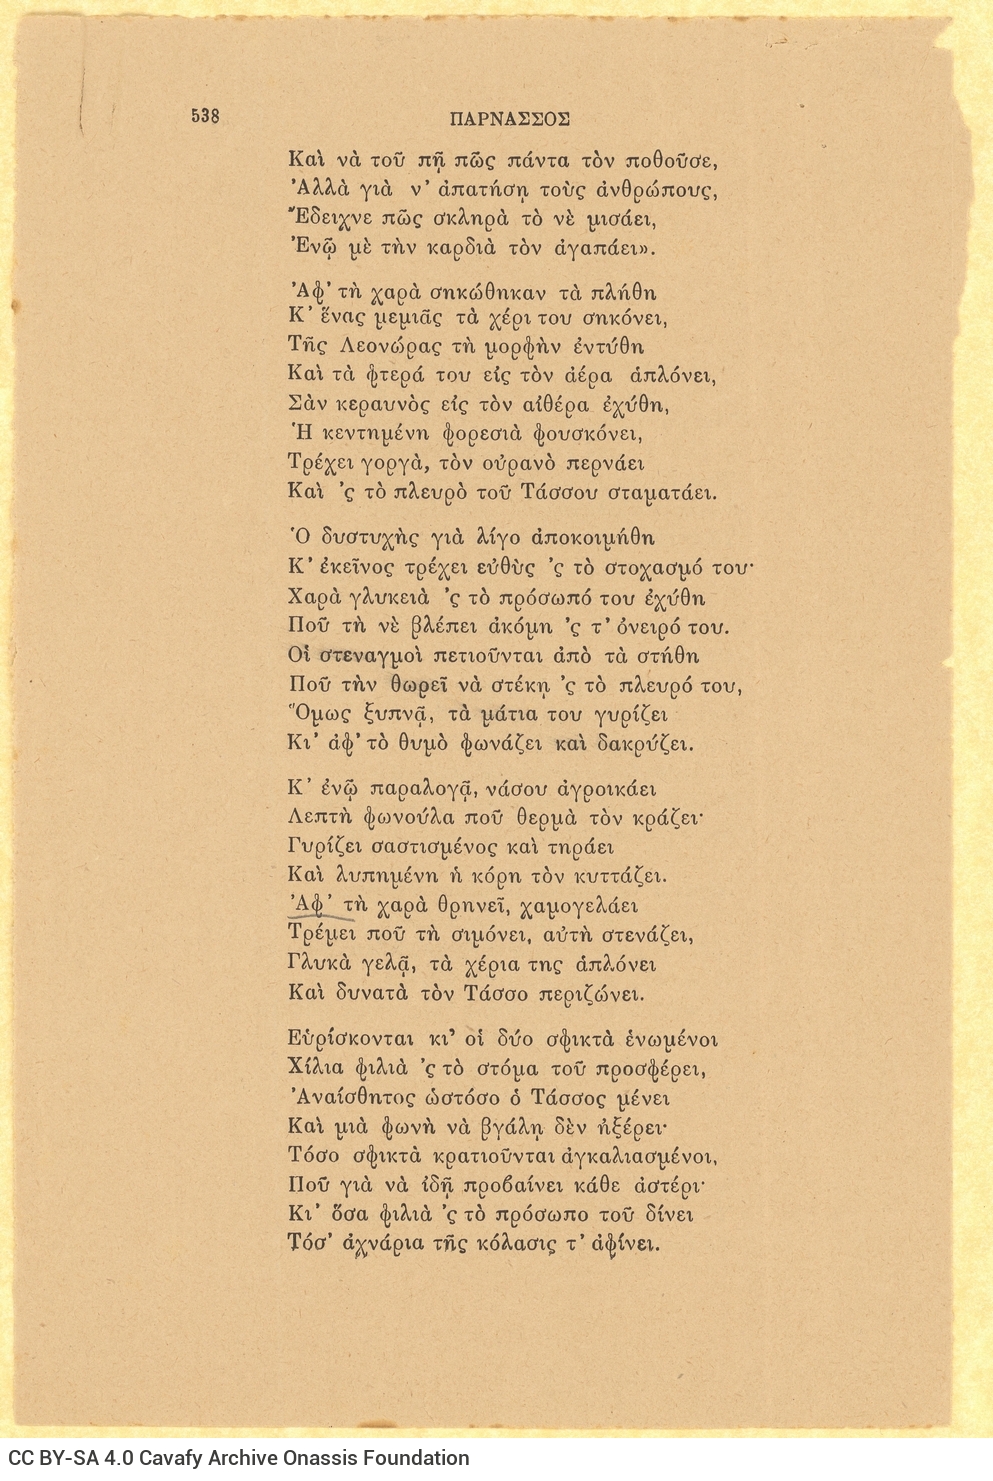 538
ΠΑΡΝΑΣΣΟΣ
Καὶ νὰ τοῦ πῇ πῶς πάντα τὸν ποθοῦσε,
Ἀλλὰ γιὰ ν' ἀπατήσῃ τοὺς ἀνθρώπους,
Ἔδειχνε πῶς σκληρὰ τὸ νὲ μισάει,
Ἐνῷ μὲ τὴν καρδιὰ τὸν ἀγαπάει».
Ἀφ' τὴ χαρὰ σηκώθηκαν τὰ πλήθη
Κ' ἕνας μεμιᾶς τὰ χέρι του σηκόνει,
Τῆς Λεονώρας τὴ μορφὴν ἐντύθη
Καὶ τὰ φτερά του εἰς τὸν ἀέρα ἁπλόνει,
Σὰν κεραυνὸς εἰς τὸν αἰθέρα ἐχύθη,
Ἡ κεντημένη φορεσιὰ φουσκόνει,
Τρέχει γοργὰ, τὸν οὐρανὸ περνάει
Καὶ 'ς τὸ πλευρὸ τοῦ Τάσσου σταματάει.
Ὁ δυστυχὴς γιὰ λίγο ἀποκοιμήθη
Κ' ἐκεῖνος τρέχει εὐθὺς 'ς τὸ στοχασμό του·
Χαρὰ γλυκειὰ 'ς τὸ πρόσωπό του ἐχύθη
Ποῦ τὴ νὲ βλέπει ἀκόμη 'ς τ' ὀνειρό του.
Οἱ στεναγμοὶ πετιοῦνται ἀπὸ τὰ στήθη
Ποῦ τὴν θωρεῖ νὰ στέκῃ 'ς τὸ πλευρό του,
Ὅμως ξυπνᾷ, τὰ μάτια του γυρίζει
Κι' ἀφ' τὸ θυμὸ φωνάζει καὶ δακρύζει.
Κ' ἐνῷ παραλογᾷ, νάσου ἀγροικάει
Λεπτὴ φωνούλα ποῦ θερμὰ τὸν κράζει·
Γυρίζει σαστισμένος καὶ τηράει
Καὶ λυπημένη ἡ κόρη τὸν κυττάζει.
Ἀφ' τὴ χαρὰ θρηνεῖ, χαμογελάει
Τρέμει ποῦ τὴ σιμόνει, αὐτὴ στενάζει,
Γλυκὰ γελᾷ, τὰ χέρια της ἁπλόνει
Καὶ δυνατὰ τὸν Τάσσο περιζώνει.
Εὑρίσκονται κι' οἱ δύο σφικτὰ ἑνωμένοι
Χίλια φιλιὰ 'ς τὸ στόμα τοῦ προσφέρει,
Ἀναίσθητος ὡστόσο ὁ Τάσσος μένει
Καὶ μιὰ φωνὴ νὰ βγάλῃ δὲν ἠξέρει·
Τόσο σφικτὰ κρατιοῦνται ἀγκαλιασμένοι,
Ποῦ γιὰ νὰ ἰδῇ προβαίνει κάθε ἀστέρι·
Κι' ὅσα φιλιὰ 'ς τὸ πρόσωπο τοῦ δίνει
Τόσ' ἀχνάρια τῆς κόλασις τ' ἀφίνει.
CC BY-SA 4.0 Cavafy Archive Onassis Foundation